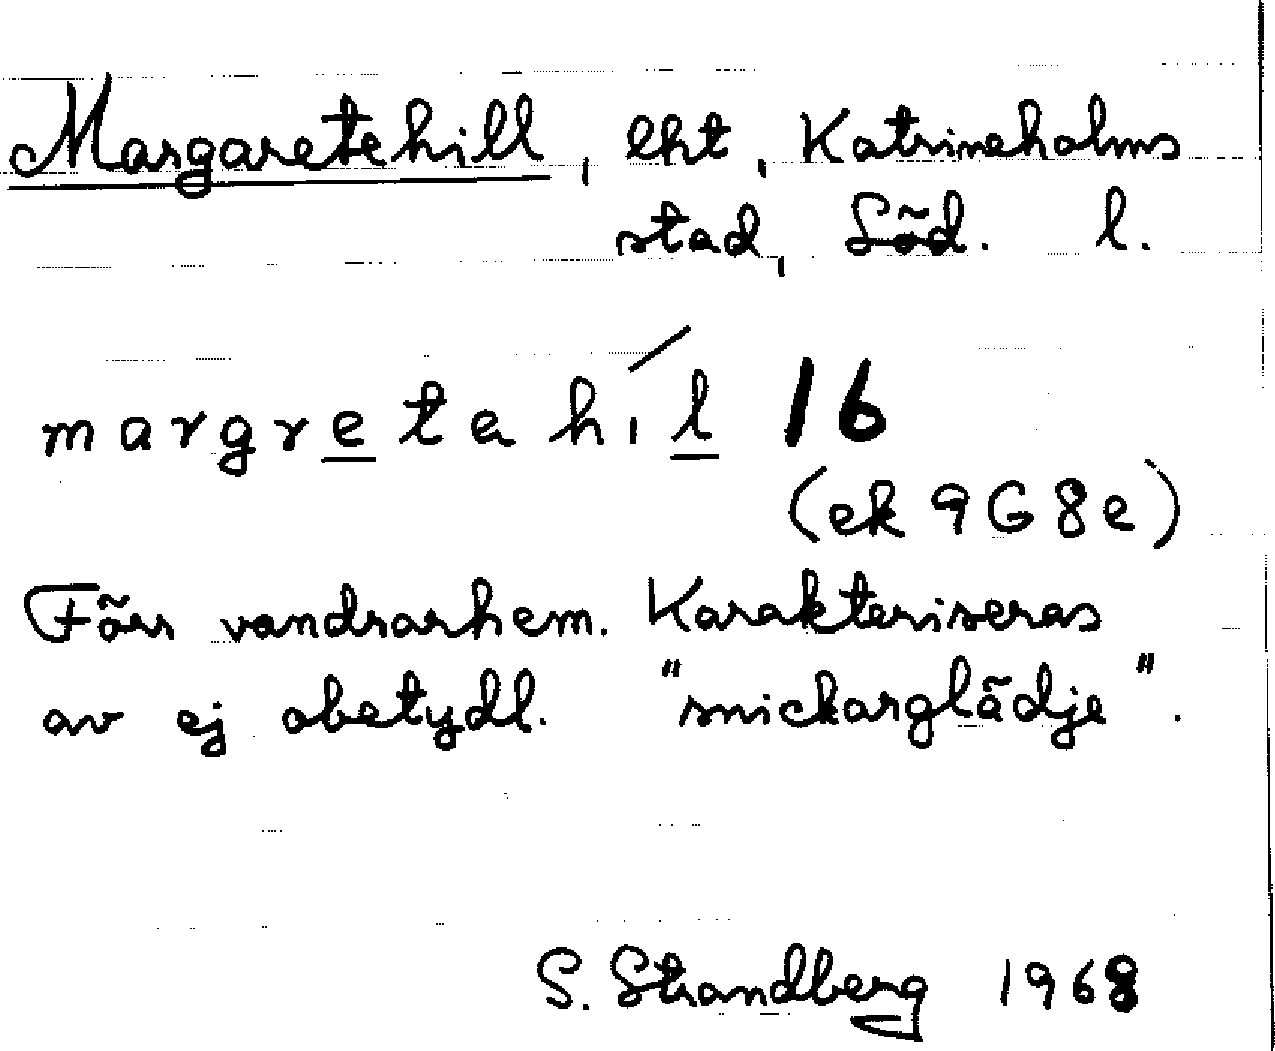 Margaretehill, lht, Katrineholms
stad, Söd. l.
margretahíl 16
(ek 9G8e)
Förr vandrarhem. Karakteriseras
av ej obetydl. "snickarglädje".
S. Strandberg 1968